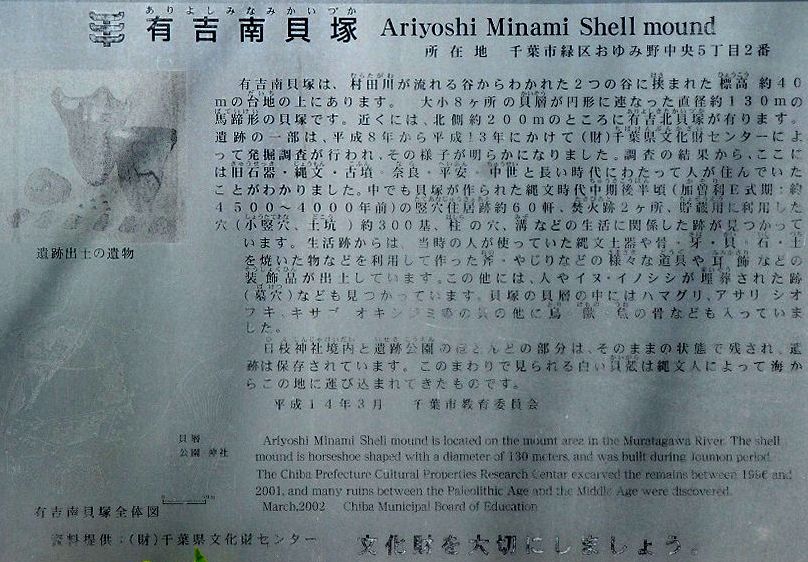 ありよしみなみかいづか
有吉南貝塚 Ariyoshi Minami Shell mound
所在地 千葉市緑区おゆみ野中央5丁目2番
有吉南貝塚は、村田川が流れる谷からわかれた2つの谷に挟まれた標高約40
mの台地の上にあります。 大小8ヶ所の貝層が円形に連なった直径約130mの
馬蹄形の貝塚です。近くには、北側約200mのところに有吉北貝塚が有ります。
遺跡の一部は、平成8年から平成13年にかけて(財)千葉県文化財センターによ
って発掘調査が行われ、その様子が明らかになりました。調査の結果から、ここに
は旧石器・縄文・古墳・奈良・平安・中世と長い時代にわたって人が住んでいた
ことがわかりました。中でも貝塚が作られた縄文時代中期後半頃(加曽利E式期:約
4500〜4000年前)の竪穴住居跡約60軒、焚火跡2ヶ所、貯蔵用に利用した
穴(小竪穴、土坑)約300基、柱の穴、溝などの生活に関係した跡が見つかって
います。生活跡からは、当時の人が使っていた縄文土器や骨・牙・貝・石・土
を焼いた物などを利用して作った斧・やじりなどの様々な道具や耳飾などの
装飾品が出土しています。この他には、人やイヌ・イノシシが埋葬された跡
(墓穴)なども見つかっています。貝塚の貝層の中にはハマグリ、アサリ シオ
フキ、キサゴ オキシジミ等の貝の他に鳥・獣・魚の骨なども入っていま
した。
日枝神社境内と遺跡公園のほとんどの部分は、そのままの状態で残され、遺
跡は保存されています。このまわりで見られる白い貝殻は縄文人によって海か
らこの地に運び込まれてきたものです。
平成14年3月 千葉市教育委員会
遺跡出土の遺物
貝層
公園 神社
Ariyoshi Minami Shell mound is located on the mount area in the Muratagawa River. The shell
mound is horseshoe shaped with a diameter of 130 meters, and was built during Joumon period.
The Chiba Prefecture Cultural Properties Research Centar excarved the remains between 1996 and
2001, and many ruins between the Paleolithic Age and the Middle Age were discovered.
March,2002 Chiba Municipal Board of Education
有吉南貝塚全体図
資料提供:(財)千葉県文化財センター
文化財を大切にしましょう。